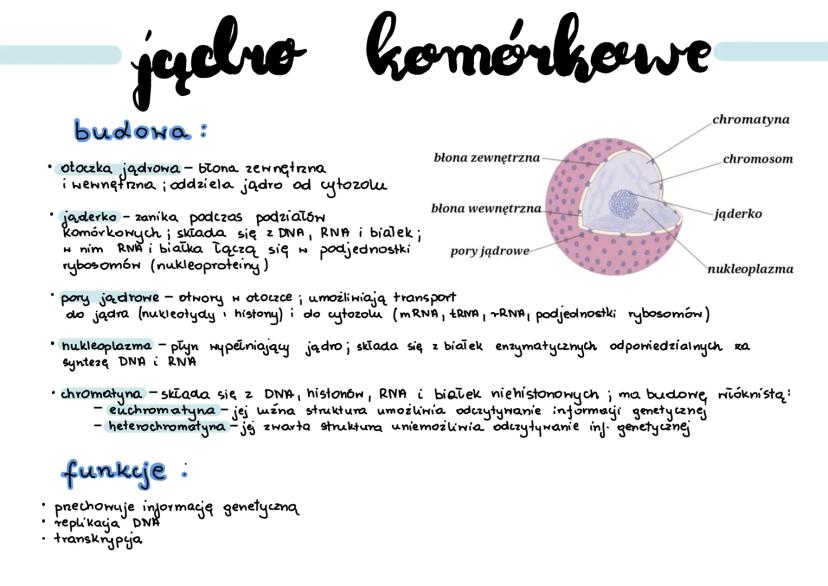 jądro komórkowe
budowa:
• otoczka jądrowa – błona zewnętrzna
i wewnętrzna ; oddziela jądro od cytozolu
• jąderko – zanika podczas podziałów
komórkowych ; składa się z DNA, RNA i białek ;
w nim RNA i białka łączą się w podjednostki
rybosomów (nukleoproteiny)
• pory jądrowe – otwory w otoczce ; umożliwiają transport
do jądra (nukleotydy i histony) i do cytozolu (mRNA, tRNA, rRNA, podjednostki rybosomów)
• nukleoplazma – płyn wypełniający jądro ; składa się z białek enzymatycznych odpowiedzialnych za
syntezę DNA i RNA
• chromatyna – składa się z DNA, histonów, RNA i białek niehistonowych ; ma budowę włóknistą:
– euchromatyna – jej luźna struktura umożliwia odczytywanie informacji genetycznej
– heterochromatyna – jej zwarta struktura uniemożliwia odczytywanie inf. genetycznej
funkcje :
• przechowuje informację genetyczną
• replikacja DNA
• transkrypcja
chromatyna
błona zewnętrzna
chromosom
błona wewnętrzna
jąderko
pory jądrowe
nukleoplazma